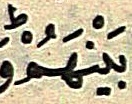 بَيْنَهُمْؕ وَ